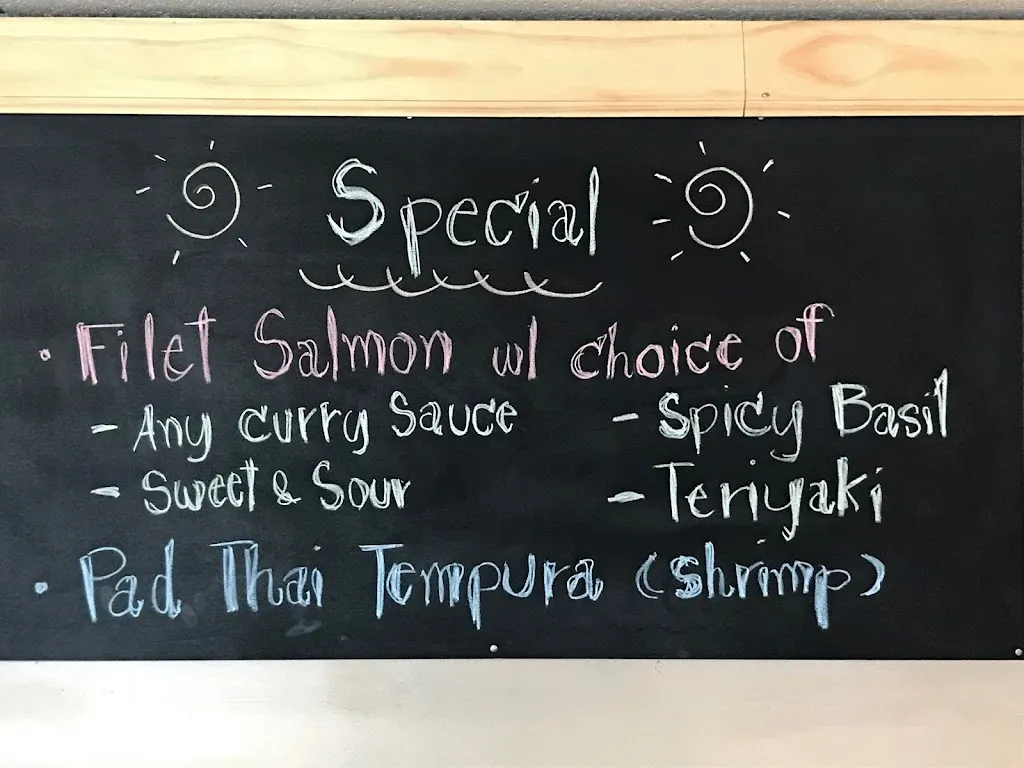 Special
• Filet Salmon w/ choice of
- Any curry Sauce - Spicy Basil
- Sweet & Sour - Teriyaki
• Pad Thai Tempura (shrimp)